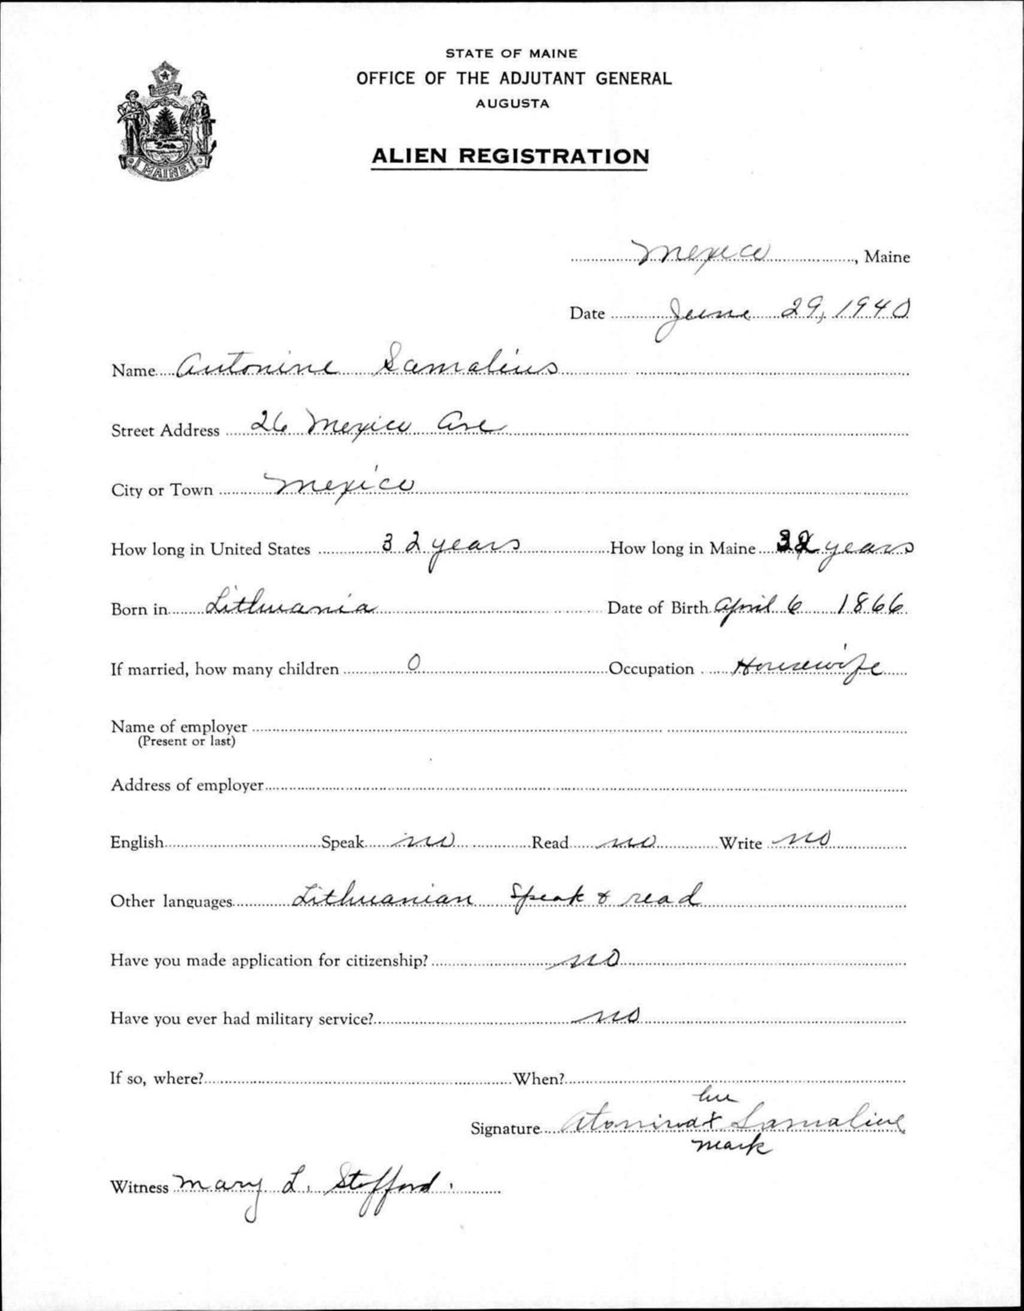 STATE OF MAINE
OFFICE OF THE ADJUTANT GENERAL
AUGUSTA
ALIEN REGISTRATION
MAINE
Mexico, Maine
Date June 29, 1940
Name Antonine Samalius
Street Address 26 Mexico Ave
City or Town Mexico
How long in United States 32 years How long in Maine 32 years
Born in Lithuania Date of Birth April 6 1866
If married, how many children 0 Occupation Housewife
Name of employer
(Present or last)
Address of employer
English Speak no Read no Write no
Other languages Lithuanian Speak & read
Have you made application for citizenship? no
Have you ever had military service? no
If so, where? When?
her
Signature x
mark
Witness Mary L. Stofford.